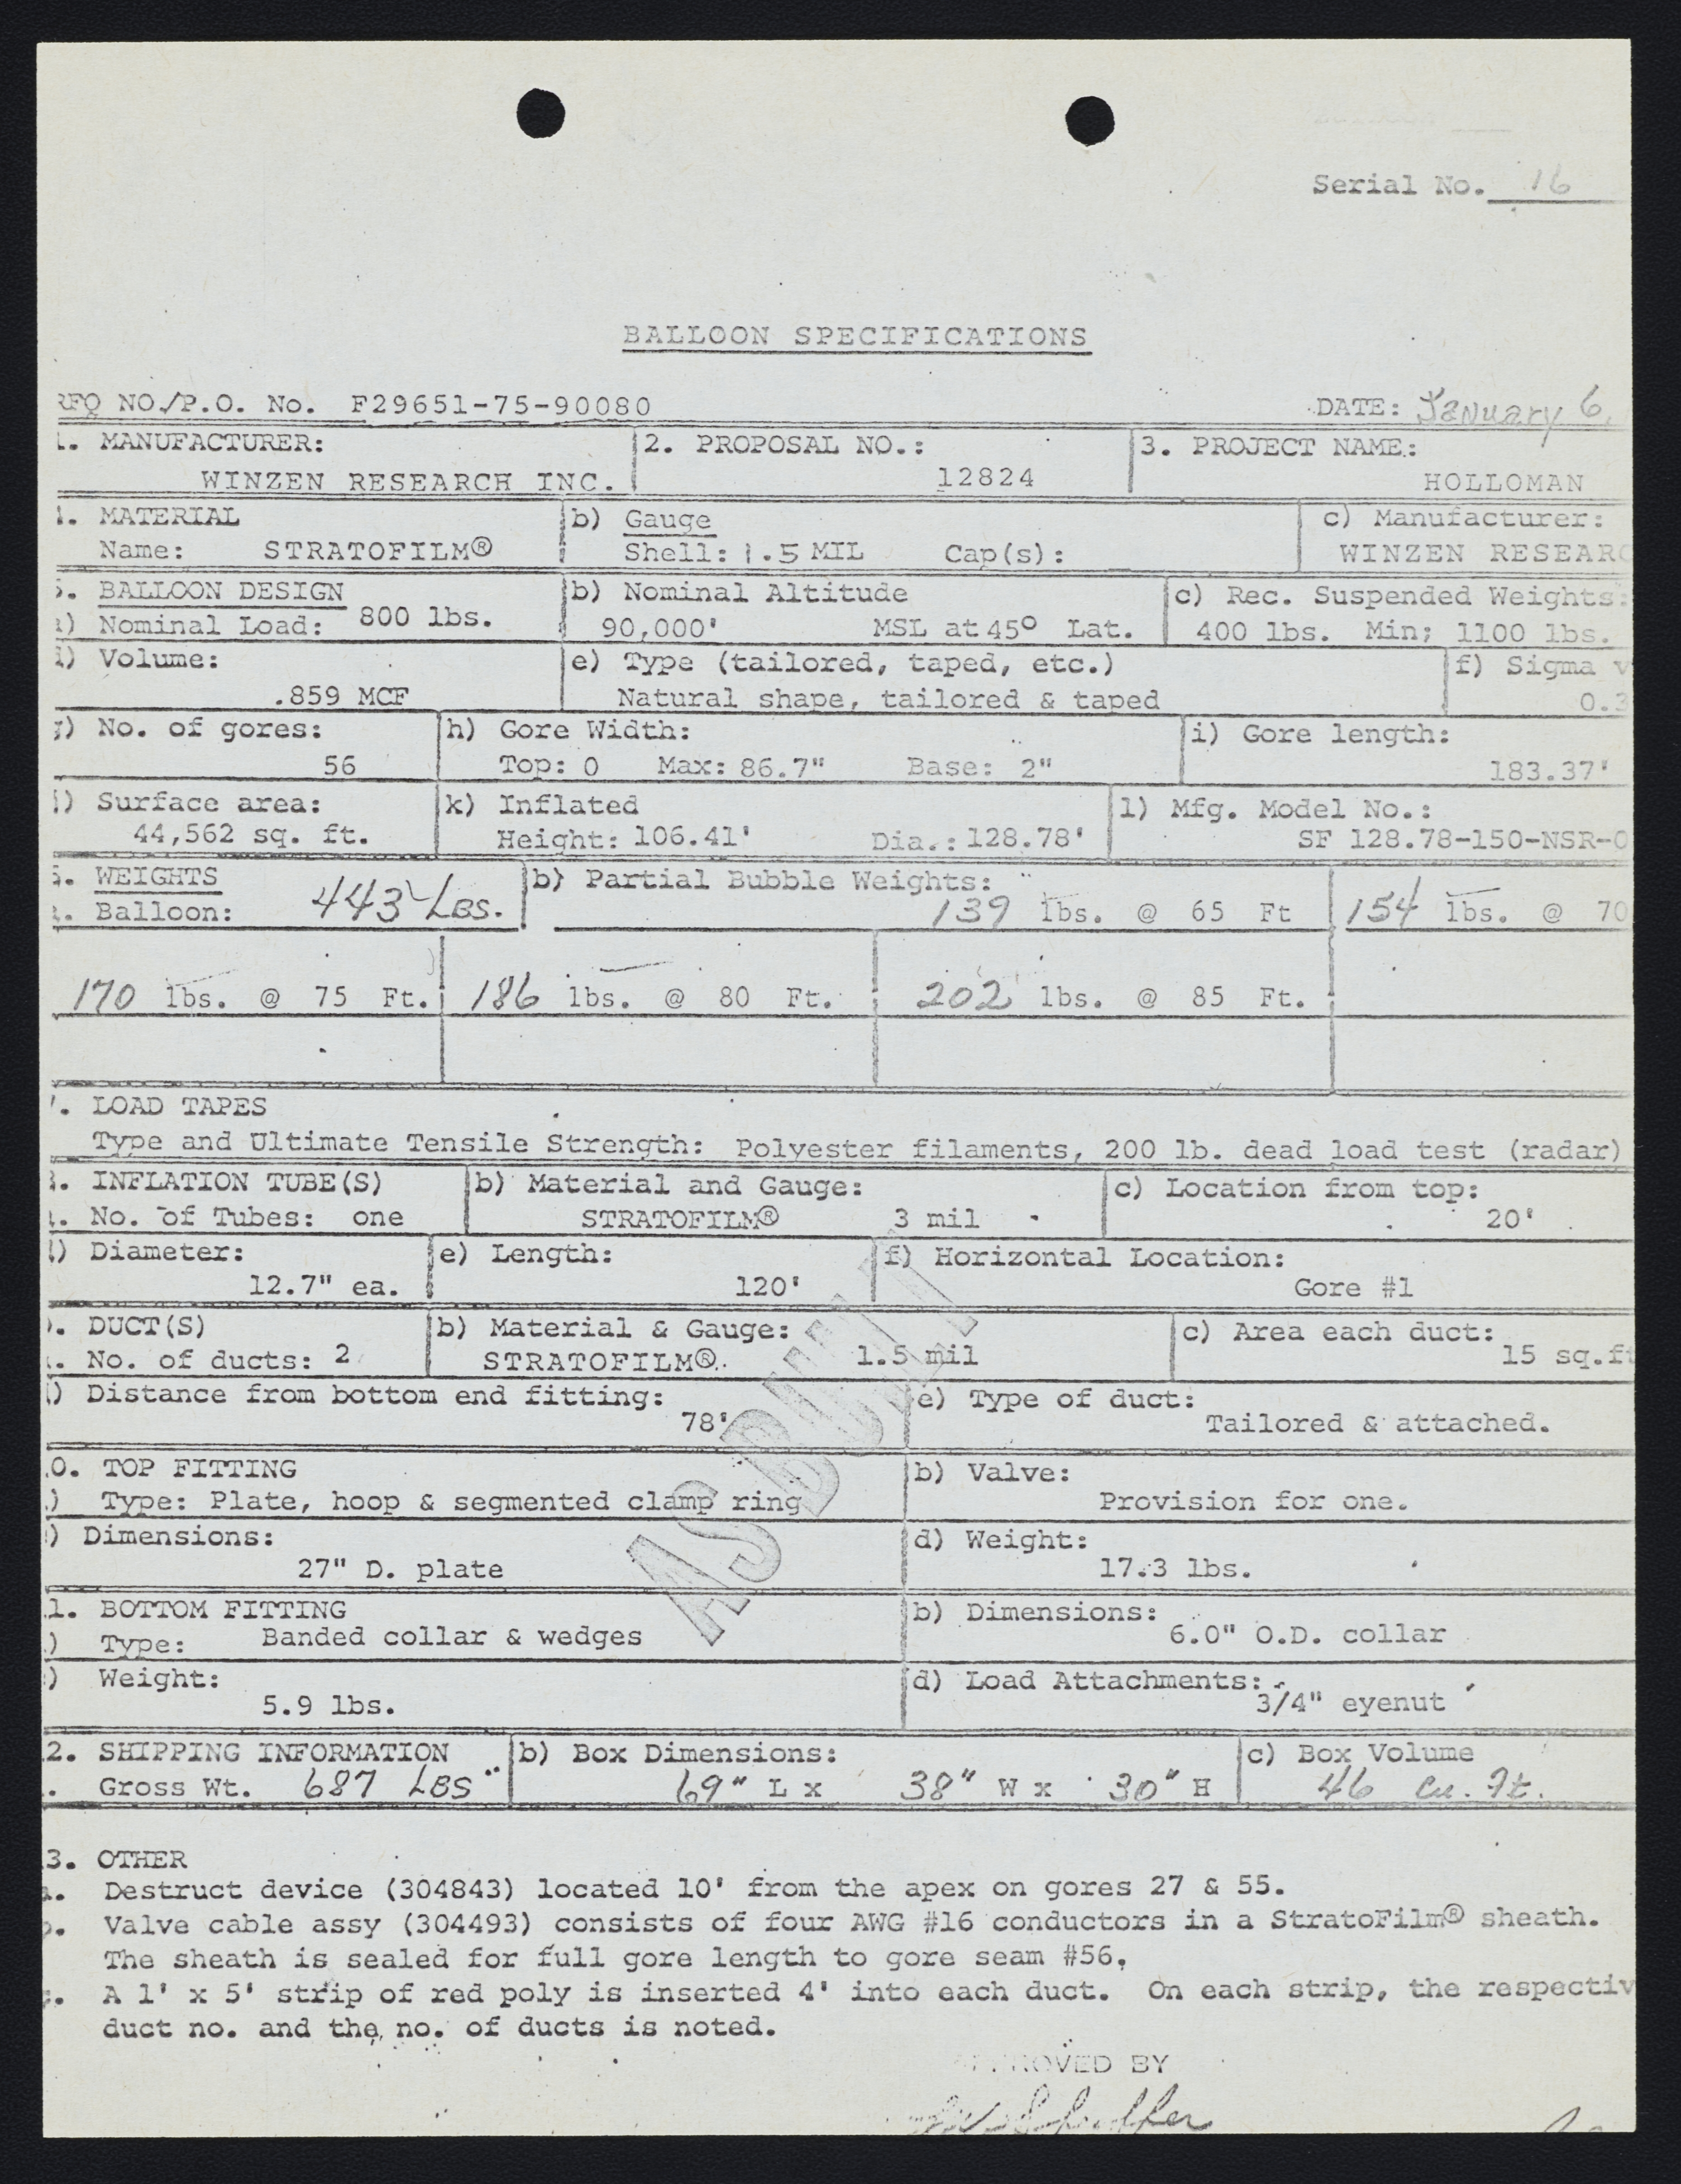 Serial No. 16
BALLOON SPECIFICATIONS
RFQ NO./P.O. No. F29651-75-90080 DATE: January 6,
1. MANUFACTURER: 2. PROPOSAL NO.: 3. PROJECT NAME:
WINZEN RESEARCH INC. 12824 HOLLOMAN
4. MATERIAL b) Gauge c) Manufacturer:
Name: STRATOFILM® Shell: 1.5 MIL Cap(s): WINZEN RESEARC
5. BALLOON DESIGN b) Nominal Altitude c) Rec. Suspended Weights:
a) Nominal Load: 800 lbs. 90,000' MSL at 45° Lat. 400 lbs. Min; 1100 lbs.
d) Volume: e) Type (tailored, taped, etc.) f) Sigma v
.859 MCF Natural shape, tailored & taped 0.3
g) No. of gores: h) Gore Width: i) Gore length:
56 Top: 0 Max: 86.7" Base: 2" 183.37'
j) Surface area: k) Inflated l) Mfg. Model No.:
44,562 sq. ft. Height: 106.41' Dia.: 128.78' SF 128.78-150-NSR-0
6. WEIGHTS b) Partial Bubble Weights:
a. Balloon: 443 LBS. 139 lbs. @ 65 Ft 154 lbs. @ 70
170 lbs. @ 75 Ft. 186 lbs. @ 80 Ft. 202 lbs. @ 85 Ft.
7. LOAD TAPES
Type and Ultimate Tensile Strength: Polyester filaments, 200 lb. dead load test (radar)
8. INFLATION TUBE(S) b) Material and Gauge: c) Location from top:
a. No. of Tubes: one STRATOFILM® 3 mil 20'
d) Diameter: e) Length: f) Horizontal Location:
12.7" ea. 120' Gore #1
9. DUCT(S) b) Material & Gauge: c) Area each duct:
a. No. of ducts: 2 STRATOFILM® 1.5 mil 15 sq.ft
d) Distance from bottom end fitting: e) Type of duct:
78' Tailored & attached.
AS BUILT
10. TOP FITTING b) Valve:
a) Type: Plate, hoop & segmented clamp ring Provision for one.
c) Dimensions: d) Weight:
27" D. plate 17.3 lbs.
11. BOTTOM FITTING b) Dimensions:
a) Type: Banded collar & wedges 6.0" O.D. collar
c) Weight: d) Load Attachments:
5.9 lbs. 3/4" eyenut
12. SHIPPING INFORMATION b) Box Dimensions: c) Box Volume
a. Gross Wt. 687 LBS 69" L x 38" W x 30" H 46 cu. ft.
13. OTHER
a. Destruct device (304843) located 10' from the apex on gores 27 & 55.
b. Valve cable assy (304493) consists of four AWG #16 conductors in a StratoFilm® sheath.
The sheath is sealed for full gore length to gore seam #56.
c. A 1' x 5' strip of red poly is inserted 4' into each duct. On each strip, the respectiv
duct no. and the no. of ducts is noted.
APPROVED BY